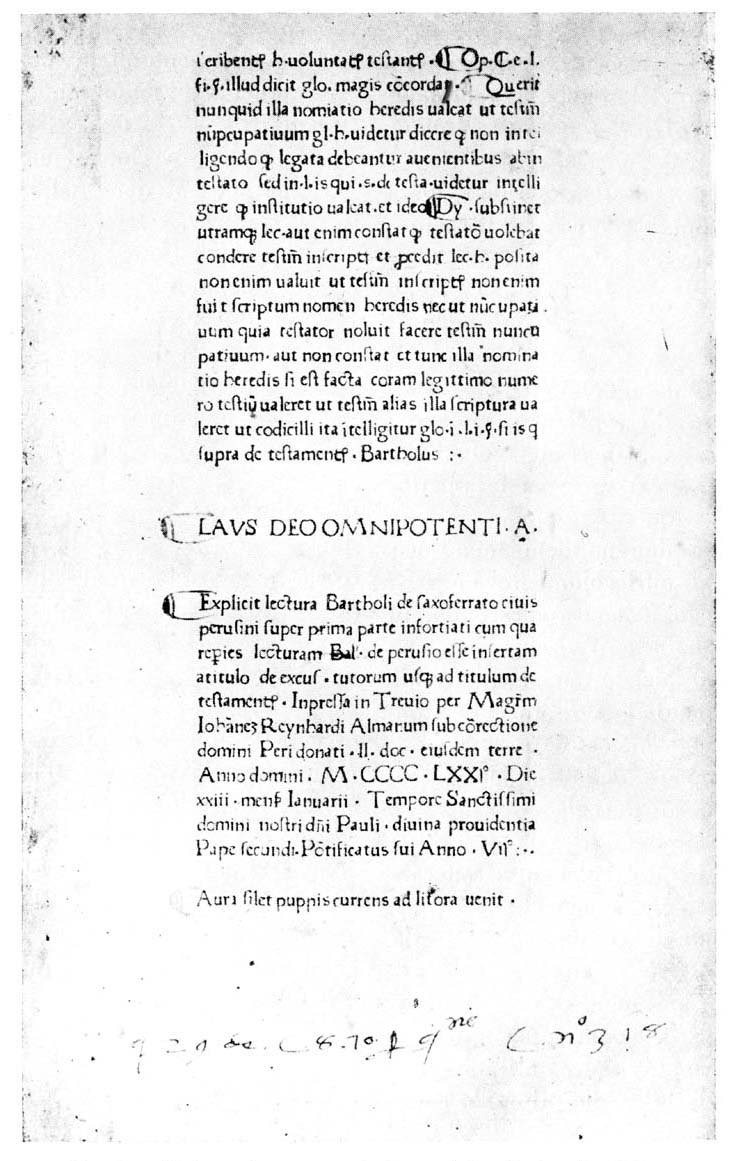 scribentꝭ h·uoluntatꝭ testantꝭ · Op.C.e.l.
fi.ꝙ.illud dicit glo. magis cõcordat. Querit
nunquid illa nomiatio heredis ualeat ut testm̃
nũcupatiuum gl.h.uidetur dicere ꝙ non intei
ligendo ꝙ legata debeantur auenientibus abin
testato sed in.l.is qui.s.de testa.uidetur intelli
gere ꝙ institutio ualeat.et ideo Dy.substinet
utramqꝫ lec.aut enim constat ꝙ testatõ uolebat
condere testm̃ inscriptꝭ et ꝓcedit lec.h. posita
non enim ualuit ut testm̃ inscriptꝭ non enim
fuit scriptum nomen heredis nec ut nũcupati
uum quia testator noluit facere testm̃ nuncu
patiuum. aut non constat et tunc illa nomina
tio heredis si est facta coram legittimo nume
ro testiũ ualeret ut testm̃ alias illa scriptura ua
leret ut codicilli ita ĩtelligitur glo.i.l.i.ꝙ.si is q
supra de testamentꝭ. Bartholus :·
LAVS DEO OMNIPOTENTI. A.
Explicit lectura Bartholi de saxoferrato ciuis
perusini super prima parte infortiati cum qua
repies lecturam Bal'. de perusio esse insertam
atitulo de excus. tutorum usqꝫ ad titulum de
testamentꝭ. Inpressa in Treuio per Magrm̃
Iohãneꝫ Reynhardi Almanum sub cõrectione
domini Peri donati .ll. doc. eiusdem terre.
Anno domini. M.CCCC.LXXI°. Die
xxiii.mensꝭ Ianuarii. Tempore Sanctissimi
domini nostri dñi Pauli. diuina prouidentia
Pape secundi.Põtificatus sui Anno. VII°:·.
Aura silet puppis currens ad litora uenit.
n° 318